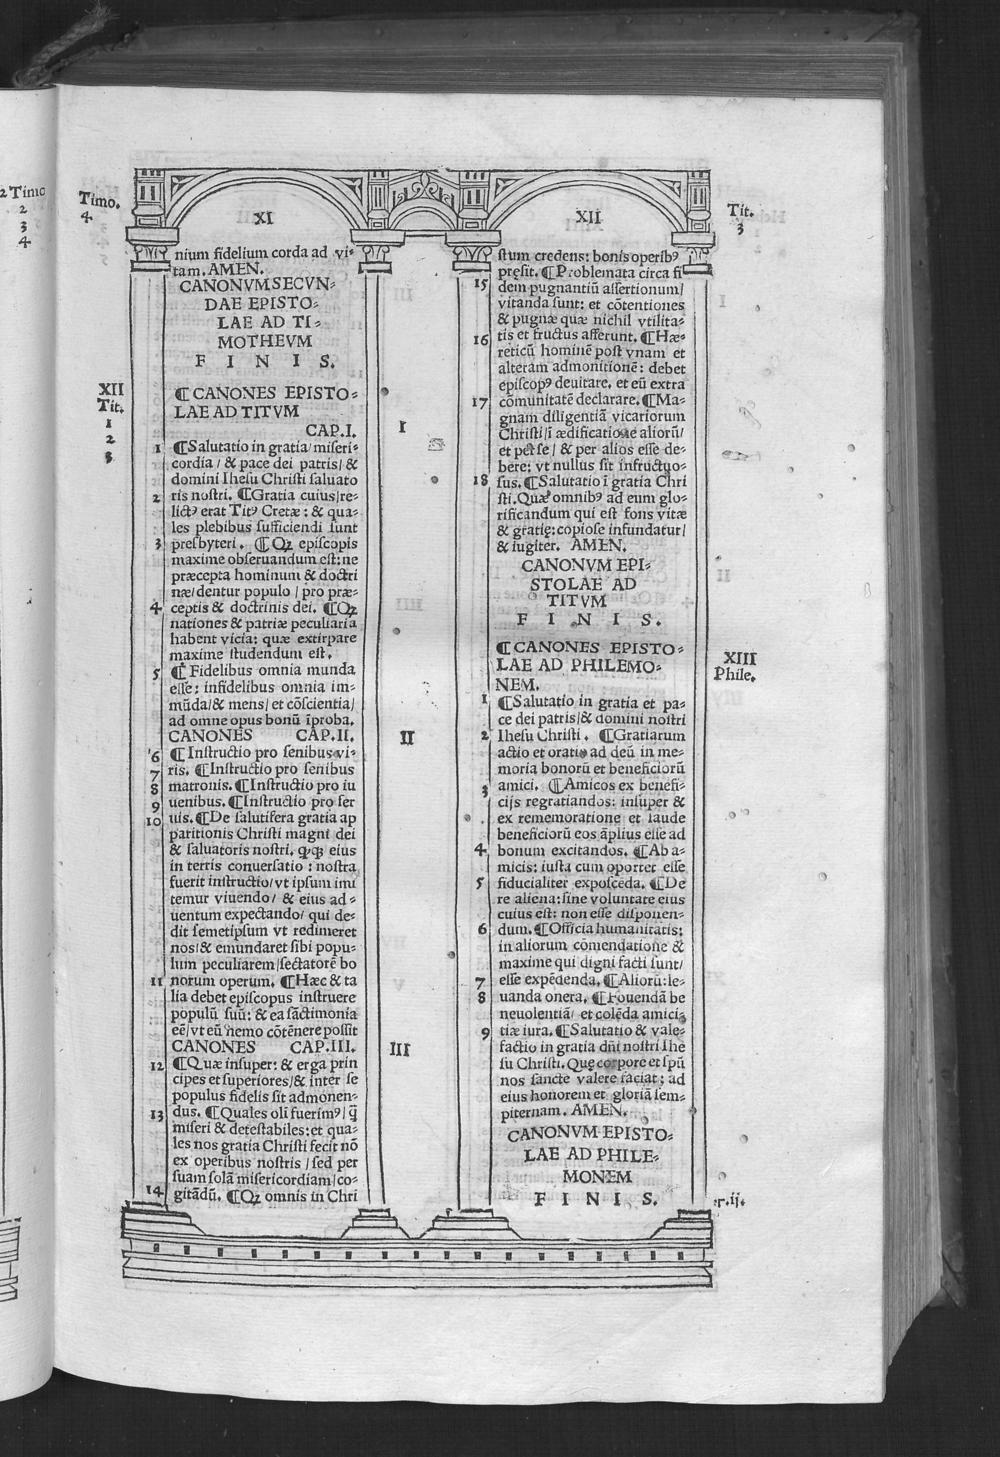 2 Timo
2
3
4
Timo.
4
XI
nium fidelium corda ad vi⸗
tam. AMEN.
CANONVM SECVN⸗
DAE EPISTO⸗
LAE AD TI⸗
MOTHEVM
F I N I S.
XII
Tit.
1
2
3
¶CANONES EPISTO⸗
LAE AD TITVM
CAP.I.
I
1 ¶Salutatio in gratia/ miseri⸗
cordia / & pace dei patris/ &
domini Ihesu Christi saluato
2 ris nostri. ¶Gratia cuius/ re⸗
lictꝰ erat Titꝰ Cretæ: & qua⸗
les plebibus sufficiendi sunt
3 presbyteri. ¶Qꝫ episcopis
maxime obseruandum est: ne
præcepta hominum & doctri
næ/ dentur populo / pro præ⸗
4 ceptis & doctrinis dei. ¶Qꝫ
nationes & patriæ peculiaria
habent vicia: quæ extirpare
maxime studendum est.
5 ¶ Fidelibus omnia munda
esse: infidelibus omnia im⸗
mũda/ & mens/ et cõscientia/
ad omne opus bonũ ĩproba.
CANONES CAP.II.
II
6 ¶Instructio pro senibus vi⸗
7 ris. ¶Instructio pro senibus
8 matronis. ¶Instructio pro iu
9 uenibus. ¶Instructio pro ser
10 uis. ¶De salutifera gratia ap
paritionis Christi magni dei
& saluatoris nostri. qꝫqꝫ eius
in terris conuersatio: nostra
fuerit instructio/ vt ipsum imi
temur viuendo/ & eius ad⸗
uentum expectando/ qui de⸗
dit semetipsum vt redimeret
nos/ & emundaret sibi popu⸗
lum peculiarem/ sectatorẽ bo
11 norum operum. ¶Hæc & ta
lia debet episcopus instruere
populũ suũ: & ea sãctimonia
eẽ/ vt eũ nemo cõtẽnere possit
CANONES CAP.III.
III
12 ¶Quæ insuper: & erga prin
cipes et superiores/ & inter se
populus fidelis sit admonen⸗
13 dus. ¶Quales oli fuerimꝰ/ q̃
miseri & detestabiles: et qua⸗
les nos gratia Christi fecit nõ
ex operibus nostris / sed per
suam solã misericordiam/ co⸗
14 gitãdũ. ¶Qꝫ omnis in Chri
XII
Tit.
3
stum credens: bonis operibꝰ
pręsit. ¶Problemata circa fi
15 dem pugnantiũ assertionum/
vitanda sunt: et cõtentiones
& pugnæ quæ nichil vtilita⸗
16 tis et fructus afferunt. ¶Hæ⸗
reticũ hominẽ post vnam et
alteram admonitionẽ: debet
episcopꝰ deuitare. et eũ extra
17 cõmunitatẽ declarare. ¶Ma⸗
gnam diligentiã vicariorum
Christi/ ĩ ædificatione aliorũ/
et per se / & per alios esse de⸗
bere: vt nullus sit infructuo⸗
18 sus. ¶Salutatio ĩ gratia Chri
sti. Quæ omnibꝰ ad eum glo⸗
rificandum qui est fons vitæ
& gratię: copiose infundatur/
& iugiter. AMEN.
CANONVM EPI⸗
STOLAE AD
TITVM
F I N I S.
XIII
Phile.
¶CANONES EPISTO⸗
LAE AD PHILEMO⸗
NEM.
1 ¶Salutatio in gratia et pa⸗
ce dei patris/ & domini nostri
2 Ihesu Christi. ¶Gratiarum
actio et oratio ad deũ in me⸗
moria bonorũ et beneficiorũ
3 amici. ¶Amicos ex benefi⸗
cijs regratiandos: insuper &
ex rememoratione et laude
beneficiorũ eos ãplius esse ad
4 bonum excitandos. ¶Ab a⸗
micis: iusta cum oportet esse
5 fiducialiter exposcẽda. ¶De
re aliena: sine voluntate eius
cuius est: non esse disponen⸗
6 dum. ¶Officia humanitatis:
in aliorum cõmendatione &
maxime qui digni facti sunt/
7 esse expẽdenda. ¶Aliorũ: le⸗
8 uanda onera. ¶Fouendã be
neuolentiã/ et colẽda amici⸗
9 tiæ iura. ¶Salutatio & vale⸗
factio in gratia dñi nostri Ihe
su Christi. Quę corpore et spũ
nos sancte valere faciat: ad
eius honorem et gloriã sem⸗
piternam. AMEN.
CANONVM EPISTO⸗
LAE AD PHILE⸗
MONEM
F I N I S.
r.ij.